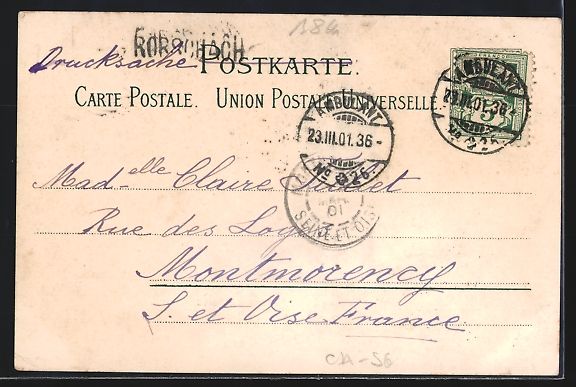 184
RORSCHACH
Drucksache POSTKARTE.
CARTE POSTALE. UNION POSTALE UNIVERSELLE.
AMBULANT
23.III.01.36-
No 26.
AMBULANT
23.III.01.36-
No 26.
01
SEINE-ET-OISE
Mad-elle Claire
Rue des
Montmorency
S. et Oise France
CH-S6